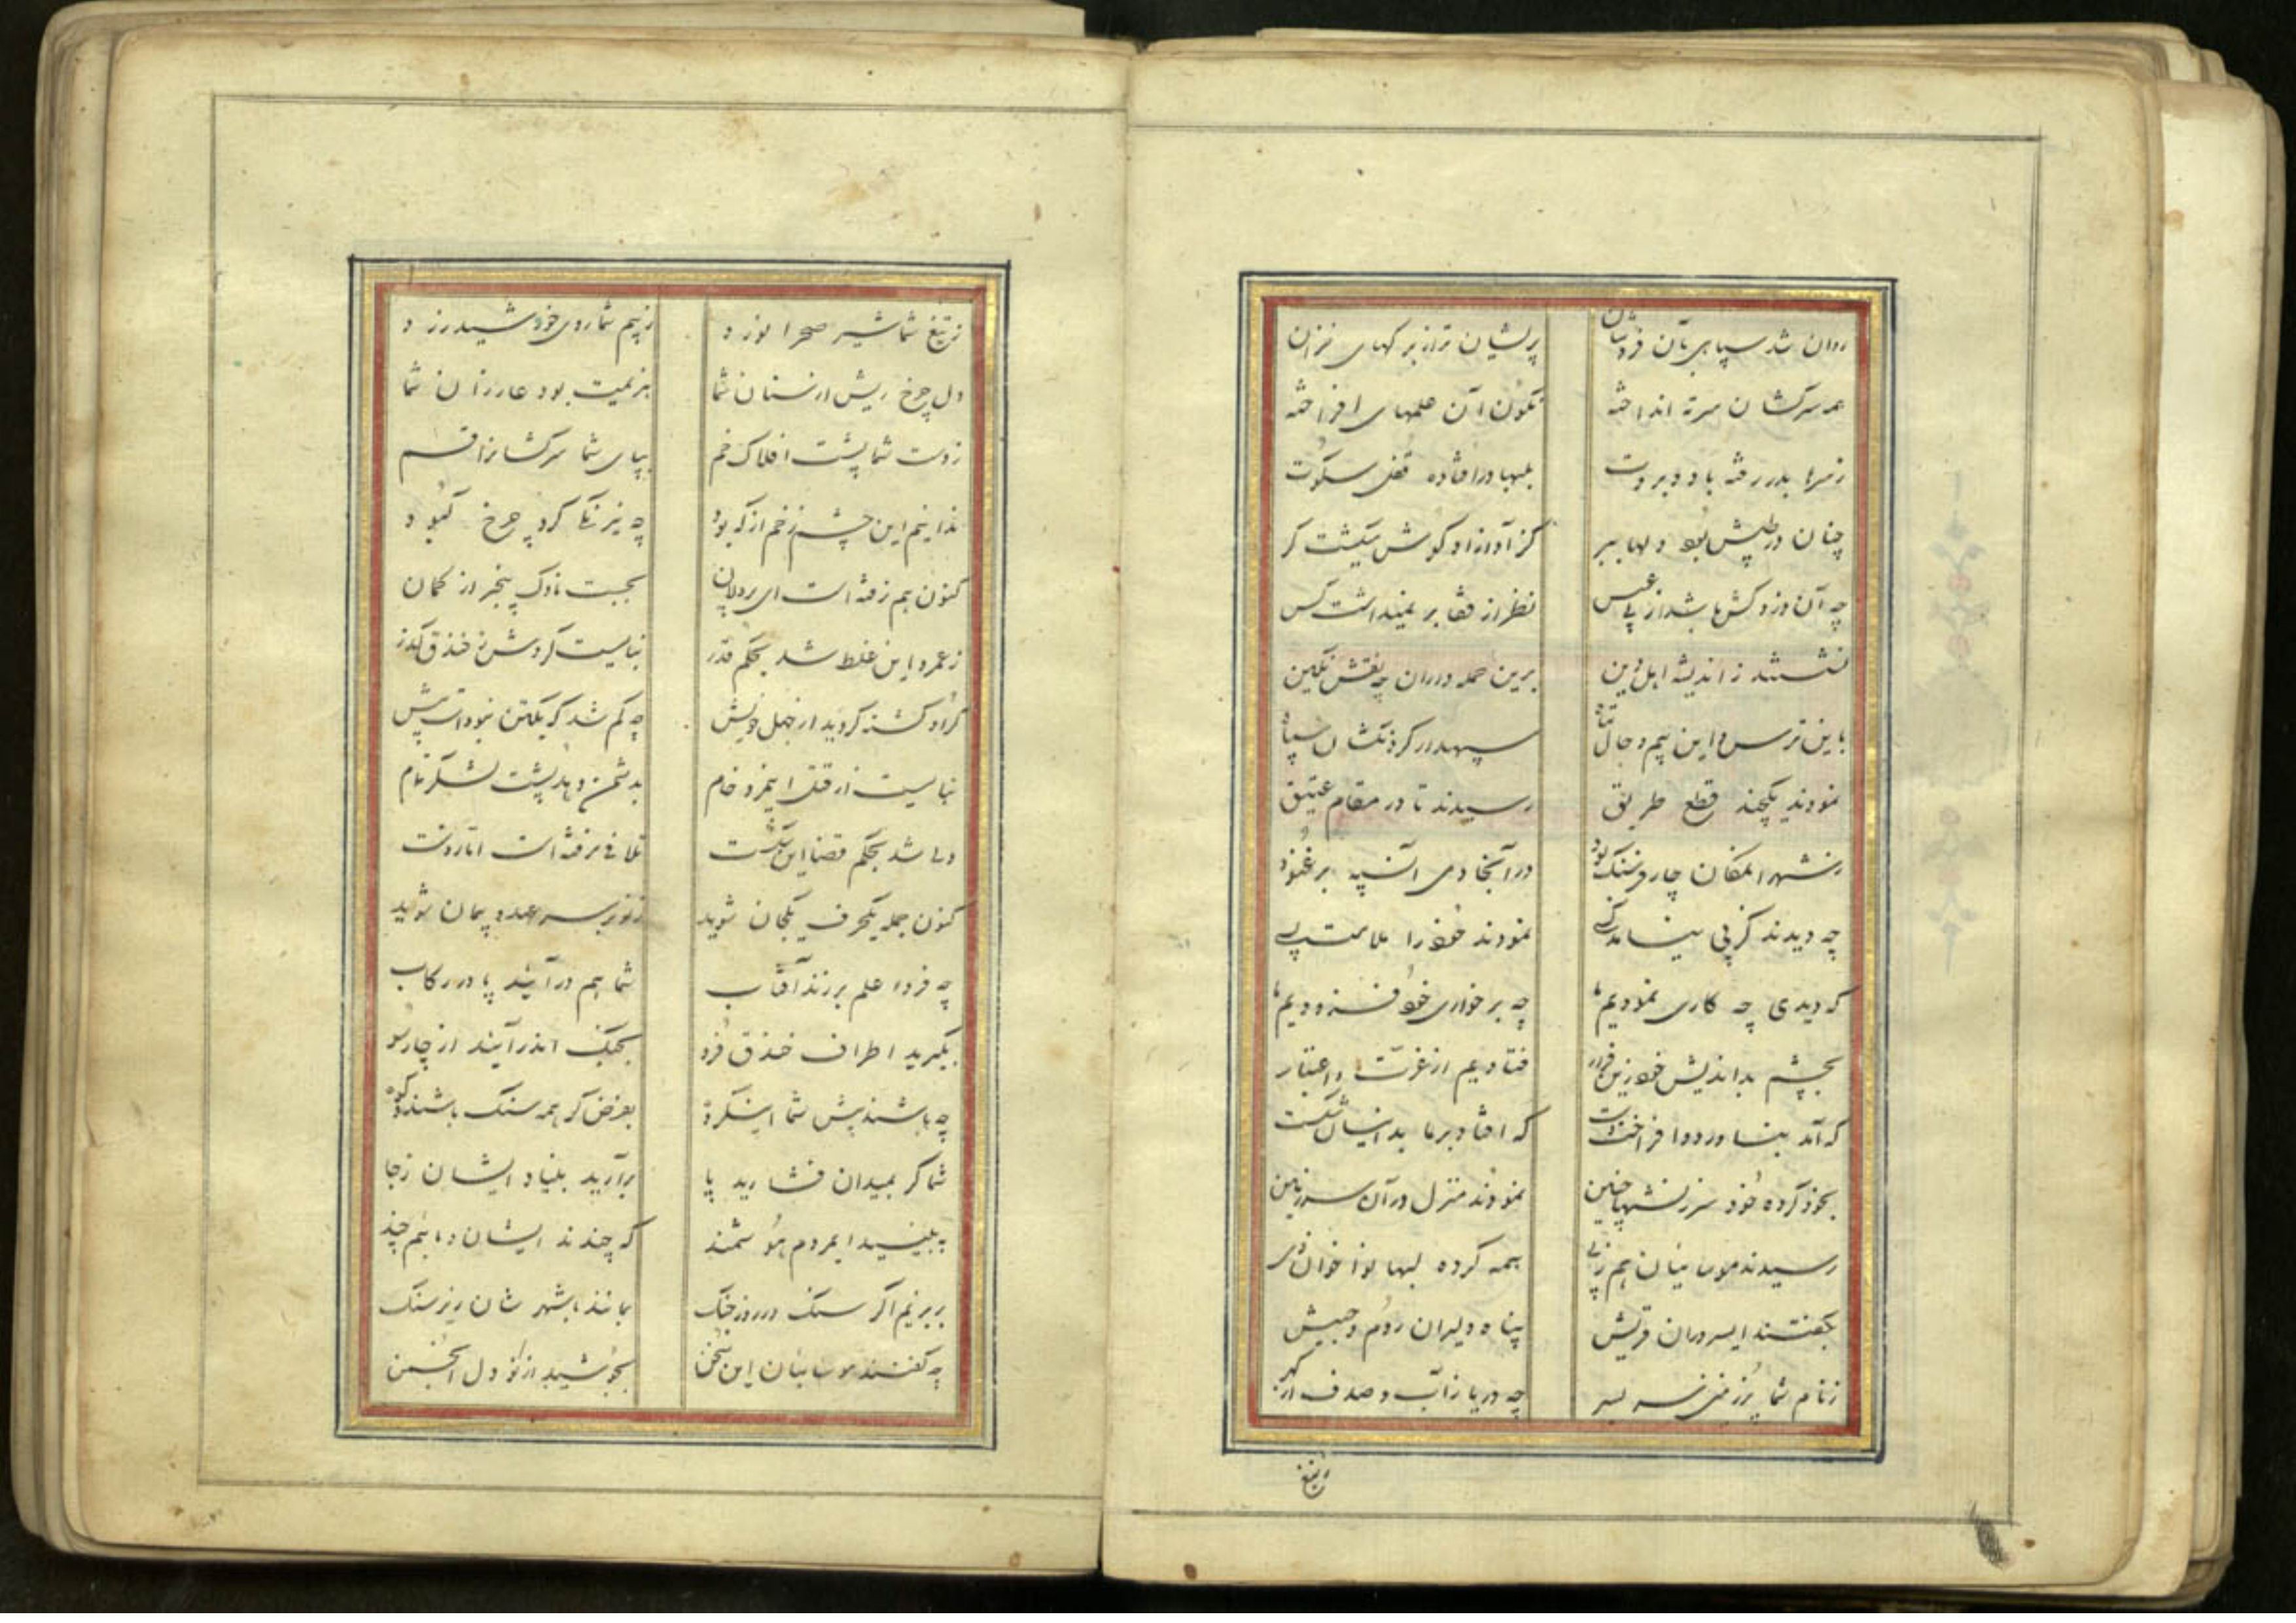 روان شد سپاهی بآن فر و شان پریشان تر از برکهای خزان
همه سرکشان سر ته انداخته نکون آن علمهای افراخته
ز سرها بدر رفته باد و بروت بلبها در افتاده قفل سکوت
چنان در طپش بود دلها ببر کز آواز او کوش میکشت کر
چه آن دزد کش باشد از پی عسس نظر از قفا بر نمیداشت کس
نشستند ز اندیشه اهل دین برین حمله داران چه نقش نکین
باین ترس و این بیم و حال تباه سپهدار کردند شان سپاه
نمودند یکچند قطع طریق رسیدند تا در مقام عتیق
ز شهر المکان چار فرسنک بود در آنجا دمی آن سپه بر غنود
چه دیدند کز پی نیامد کسی نمودند خود را ملامت بسی
که دیدی چه کاری نمودیم ما چه بر خواری خود فزودیم ما
بچشم بداندیش خود زین فرار فتادیم از عزت و اعتبار
که آمد و افراخت دست که افتاد بر ما بدانسان شکست
بخود کرده خود سرزنشها چنین نمودند منزل در آن سرزمین
رسیدند سوسانیان هم ز پی همه کرده لبها نوا خوان نی
بکفتند ای سروران قریش پناه دلیران روم و حبیش
ز نام شما پر زمین سر بسر چه دریا ز آب و صدف از کهر
ز تیغ
ز تیغ شما شیر صحرا نورد ز بیم شما روی خورشید زرد
دل چرخ ریش از سنان شما هزیمت بود عار از آن شما
ز دست شما پشت افلاک خم بپای شما سرکشانرا قسم
ندانیم این چشم زخم از که بود چه نیرنک کرد چرخ کبود
کنون هم نرفته است ای بردلان بجست ناوک پنجر از کمان
ز عمرو این غلط شد بحکم قدر نبایست کردش ز خندق کذر
کر او کشته کردید از جهل خویش چه کم شد که یکتن نبود است بیش
نبایست از قتل ایمرد خام بدشمن دهد پشت لشکر تمام
ولی شد بحکم قضا این شکست تلافی نرفته است اما ز دست
کنون جمله یکحرف و یکجان شوید ز نو بر سر عهد و پیمان شوید
چه فردا علم بر زند آفتاب شما هم در آئید پا در رکاب
بکیرید اطراف خندق فرو بجنک اندر آئید از چار سو
چه باشند پیش شما این کروه بفرض کر همه سنک باشند و کوه
شما کر بمیدان فشارید پا برآرید بنیاد ایشان ز جا
ببینید ای مردم هوشمند که چندند ایشان و ما هم چند
بریزیم اکر سنک در روز جنک بماند بشهر شان زیر سنک
چه کفتند سوسانیان این سخن بجوشید از نو دل انجمن